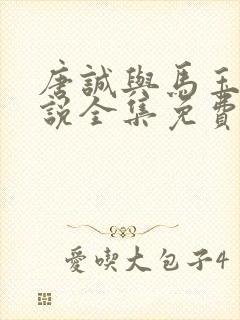 唐誠與馬玉
說全集免費
愛喫大包子4